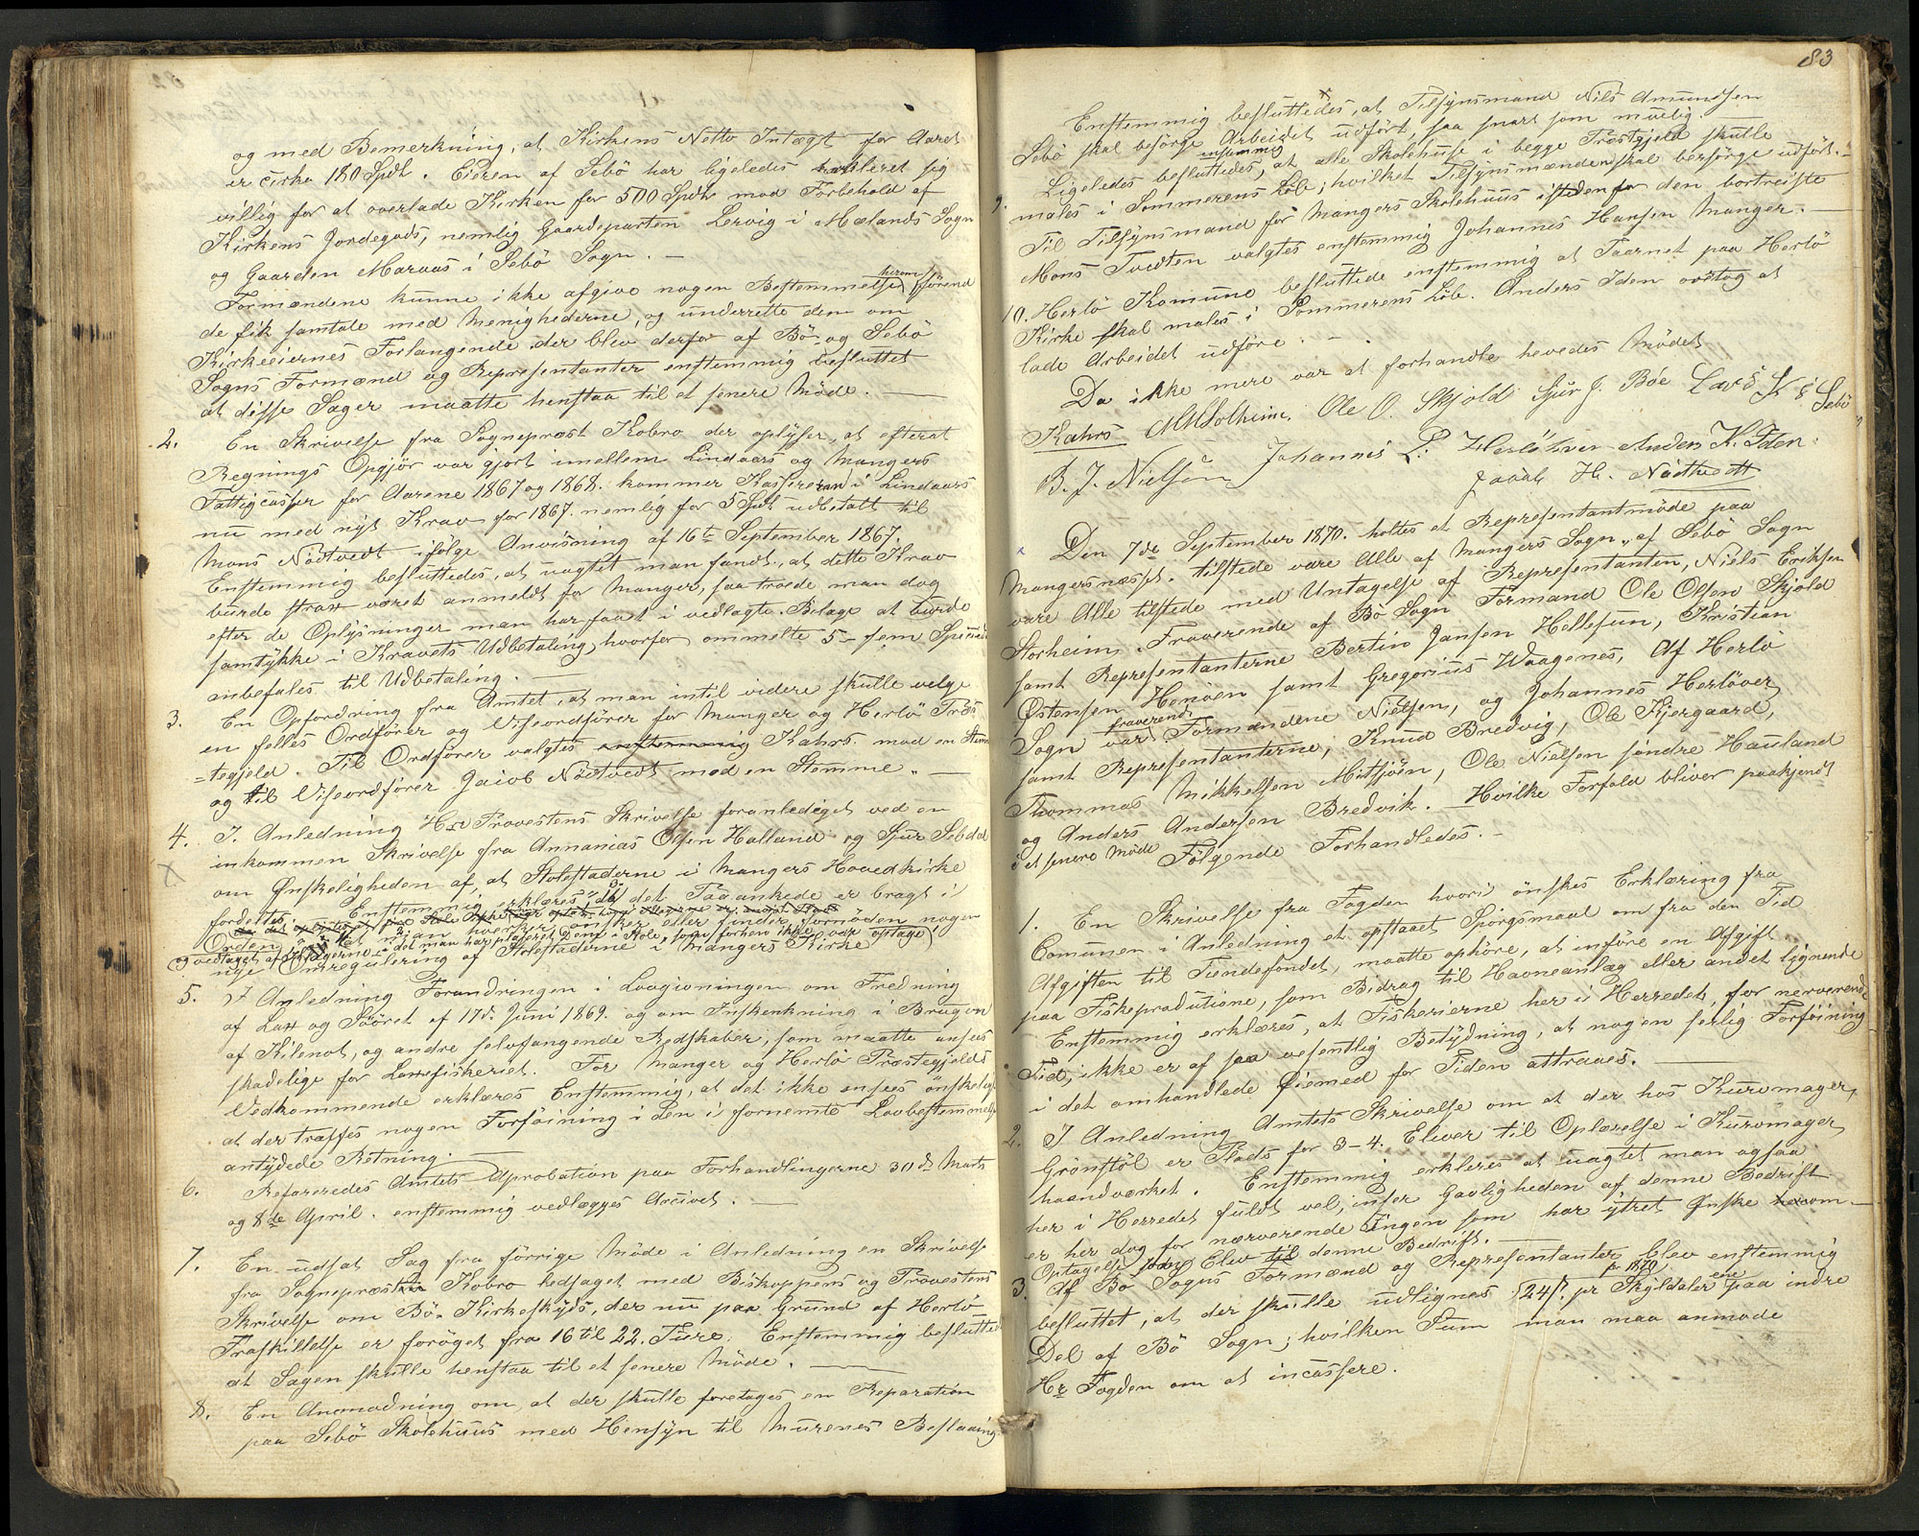 og med Bemerkning, at Kirkens Netto Intægt for Aaret
er cirka 180 Spdl. Eieren af Sebö har ligeledes erkleret sig
villig for at overlade Kirken for 500 Spdlr mod Forbehold af
Kirkens Jordegods, nemlig Gaardeparten Lervig i Mælands Sogn
og Gaarden Maraas i Sebö Sogn. —
Formændene kunne ikke afgive nogen Bestemmelse herom förend
de fik samtale med Menighederne, og underrette dem om
Kirkeeiernes Forlangende der blev derfor af Bö og Sebö
Sogns Formænd og Representanter enstemmig besluttet
at disse Sager maatte henstaa til et senere Möde. —
2. En Skrivelse fra Sognepræst Kobro der oplyser, at efterat
Regnings Opgjör var gjort imellem Lindaas og Mangers
Fattigcasser for Aarene 1867 og 1868. kommer Kassereren i Lindaas
nu med nyt Krav for 1867. nemlig for 5 Spdl udbetalt til
Mons Nödtvedt ifölge Anvisning af 16te September 1867.
Enstemmig besluttedes, at uagtet man fandt, at dette Krav
burde strax været anmeldt for Manger, saa troede man dog
efter de Oplysninger man har faaet i vedlagte Bilage at burde
samtykke i Kravets Udbetaling, hvorfor ommelte 5 – fem Specied
anbefales til Udbetaling. —
3. En Opfordring fra Amtet, at man intil videre skulle velge
en felles Ordförer og Viseordförer for Manger og Herlö Præs
-tegjeld. Til Ordförer valgtes enstemmig Kahrs mod en Stemme
og til Viseordförer Jacob Nödtvedt mod en Stemme. —
4. I Anledning Hr Provestens Skrivelse foranlediget ved en
inkommen Skrivelse fra Annanias Olsen Halland og Sjur Sebdal
om Önskeligheden af, at Stolestaderne i Mangers Hovedkirke
fordeles. Enstemmig erklæres, da det Paaankede er bragt i
Orden at man hverken önsker eller finder fornöden nogen
og vedtaget af Klagerne i det man har plaseret Dem i Stole, som forhen ikke var optaget,
nye Omregulering af Stolestaderne i Mangers Kirke
5. I Anledning Forandringen i Lovgivningen om Fredning
af Lax og Sööret af 17d. Juni 1869. og om Inskrenkning i Brugen
af Kilenot, og andre selvfangende Redskaber, som maatte anses
skadelige for Laxefiskeriet. For Manger og Herlö Præstegjelds
Vedkommende erklæres Enstemmig, at det ikke ansees önskeligt
at der træffes nogen Forföining i den i fornemte Lovbestemmelse
antydede Retning. —
6. Refereredes Amtets Aprobation paa Forhandlingerne 30de Marts
og 8de April. enstemmig vedlægges Arcivet. —
7. En udsat Sag fra förrige Möde i Anledning en Skrivelse
fra Sognepræsten Kobro ledsaget med Biskoppens og Provestens
Skrivelse om Bö Kirkeskyds, der nu paa Grund af Herlö
Fraskillelse er foröget fra 16 til 22. Ture. Enstemmig besluttet
at Sagen skulle henstaa til et senere Möde. —
8. En Anmodning om, at der skulle foretages en Reparation
paa Sebö Skolehuus med Hensyn til Murenes Beslaaing
83
Enstemmig besluttedes, at Tilsynsmand Nils Amundsen
Sebö skal besörge Arbeidet udfört, saa snart som muelig.
9. Ligeledes besluttedes enstemmig, at alle Skolehuse i begge Præstegjeld skulle
males i Sommerens Löb; hvilket Tilsynsmændene skal bersörge udfört. —
Til Tilsynsmand for Mangers Skolehuus isteden for den bortreiste
Mons Tvedten valgtes enstemmig Johannes Hansen Manger. —
10. Herlö Komune besluttede enstemmig at Taarnet paa Herlö
Kirke skal males i Sommerens Löb. Anders Iden ovetog at
lade Arbeidet udföre. —
Da ikke mere var at forhandle hevedes Mödet
Kahrs Ole O. Skjold Sjur J. Böe Lars S Sebö
B. J. Nielsen Johannes L. Herlöver Anders K. Iden
Jacob H. Nödtvedt
Den 7de September 1870. holtes et Representantmöde paa
Mangersnæsset. tilstede vare Alle af Mangers Sogn, af Sebö Sogn
vare Alle tilstede med Untagelse af Representanten, Niels Eriksen
Storheim. Fraverende af Bö Sogn Formand Ole Olsen Skjold
samt Representanterne Bertin Jansen Hellesun, Kristian
Østensen Henöen samt Gregorius Waagenes, Af Herlö
Sogn var fraverend Formændene Nielsen, og Johannes Herlöver
samt Representanterne; Knud Bredvig, Ole Kjergaard,
Thommas Mikkelsen Mitsjöen, Ole Nielsen söndre Hauland
og Anders Andersen Bredvik. Hvilke Forfald bliver paakjendt
i et senere Möde Fölgende Forhandledes. –
1. En Skrivelse fra Fogden hvori önskes Erklæring fra
Comunen i Anledning et opstaaet Spörgsmaal om fra den Tid
Afgiften til Tiendefondet, maatte ophöre, at införe en Afgift
paa Fiskeprodutione, som Bidrag til Havneanlæg eller andet lignende
Enstemmig erklæres, at Fiskerierne her i Herredet, for nerverende
Tid, ikke er af saa vesentlig Betydning, at nogen serlig Forföining
i det omhandlede Öiemed for Tiden attraaes. —
2. I Anledning Amtets Skrivelse om at der hos Kurvmager,
Grönstöl er Plads for 3–4. Elever til Oplærelse i Kurvmager
haandværket. Enstemmig erkleres at uagtet man ogsaa
her i Herredet fuldt vel, inser Gavligheden af denne Bedrift
er her dog for nærverende Ingen som har ytret Önske herom —
Optagelse som Elev til denne Bedrift. —
3. Af Bö Sogns Formænd og Representanter blev enstemmig
besluttet, at der skulle udlignes pr 1870 24 ß. pr Skyldaler paa indre
Del af Bö Sogn; hvilken Sum man maa anmode
Hr Fogden om at incassere.